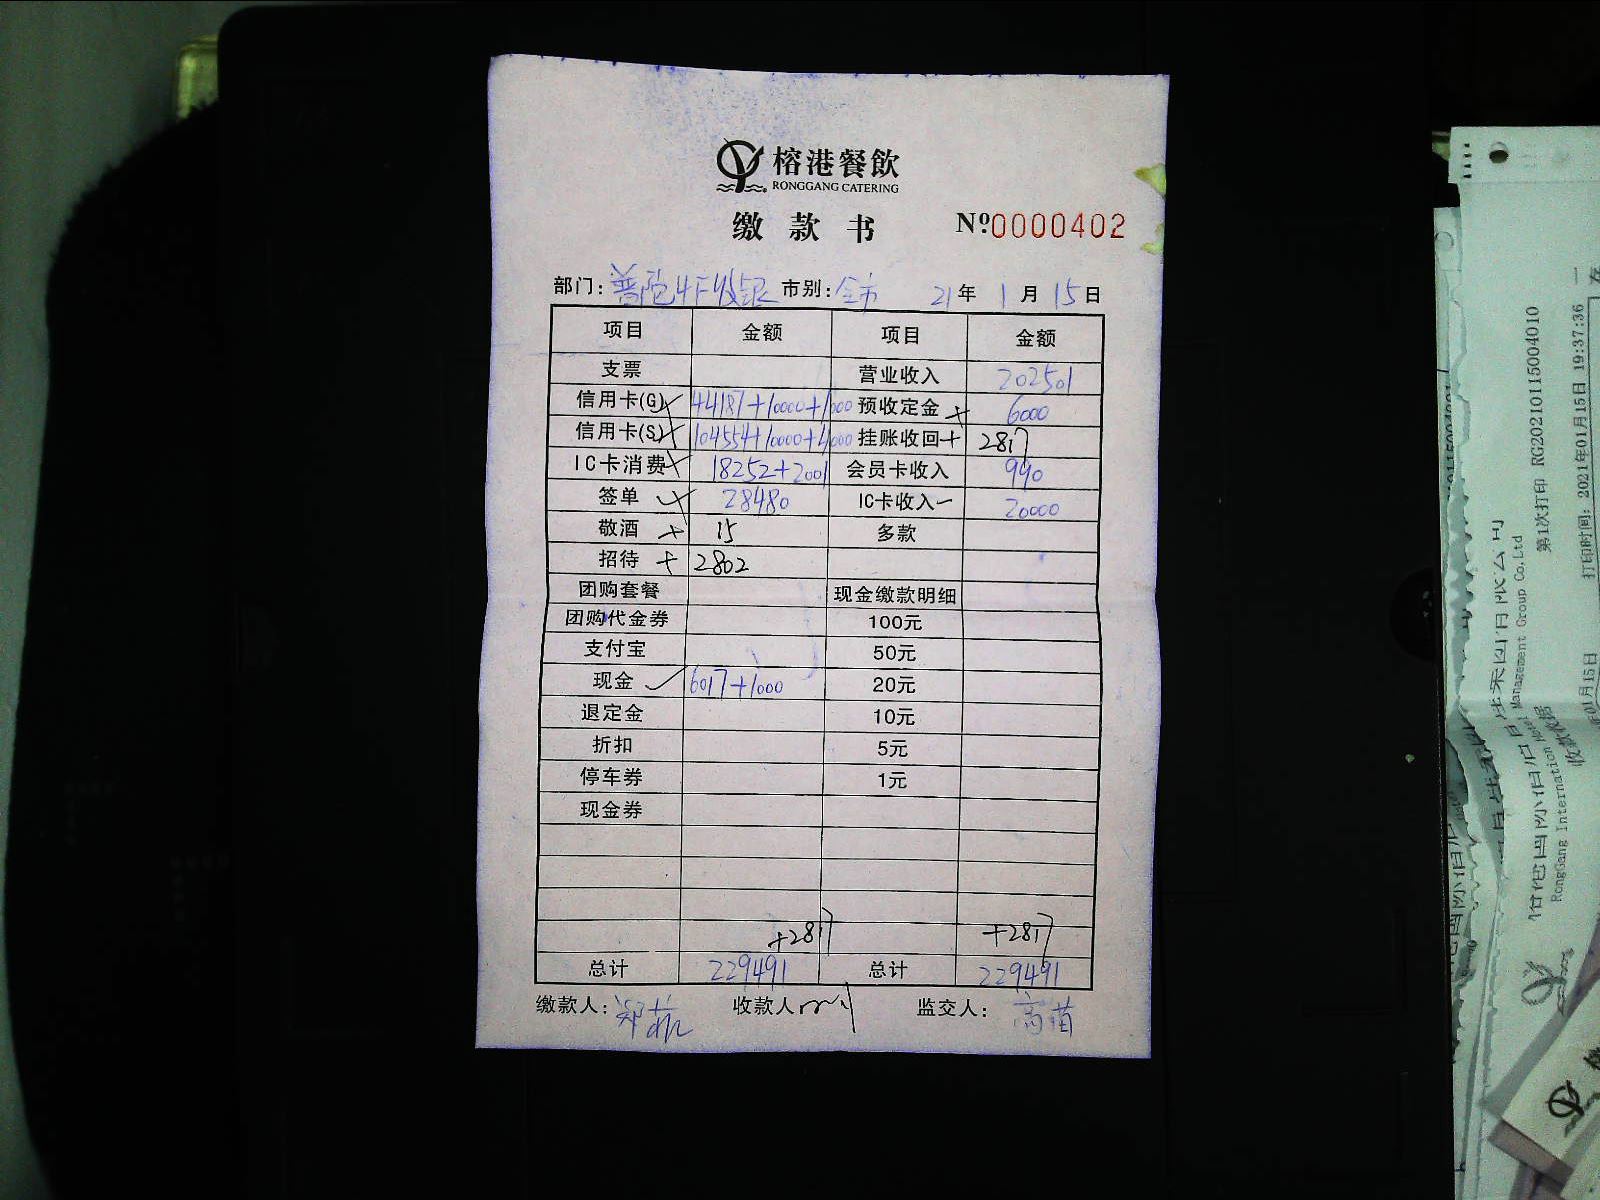 榕港餐飲
RONGGANG CATERING
缴款书 Nº0000402
部门: 普陀4F收银 市别: 全市 21年1月15日
项目 金额 项目 金额
支票 营业收入 202501
信用卡(G) 44187+10000+1000 预收定金+ 6000
信用卡(S) 104554+10000+4000 挂账收回+ 2817
IC卡消费 18252+2001 会员卡收入 990
签单 28480 IC卡收入- 20000
敬酒 + 15 多款
招待 + 2802
团购套餐 现金缴款明细
团购代金券 100元
支付宝 50元
现金 ✓ 6017+1000 20元
退定金 10元
折扣 5元
停车券 1元
现金券
+2817 +2817
总计 229491 总计 229491
缴款人: 收款人 监交人: 高苗
第1次打印 RG20210115004010
打印时间: 2021年01月15日 19:37:36
Management Group Co.Ltd
RongGang International Hotel
收款收据